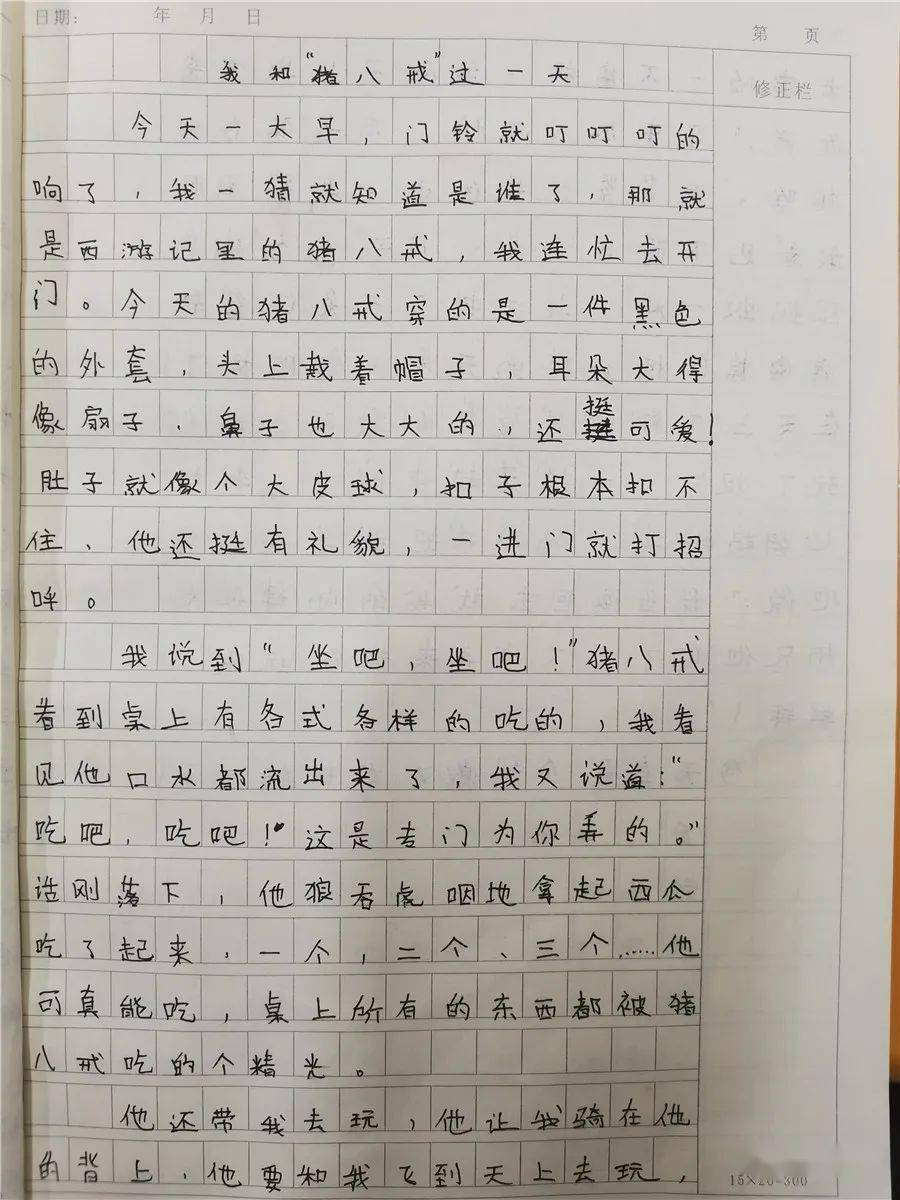 日期： 年 月 日
第 页
修正栏
我和“猪八戒”过一天
今天一大早，门铃就叮叮叮的
响了，我一猜就知道是谁了，那就
是西游记里的猪八戒，我连忙去开
门。今天的猪八戒穿的是一件黑色
的外套，头上戴着帽子，耳朵大得
像扇子，鼻子也大大的，还挺可爱！
肚子就像个大皮球，扣子根本扣不
住、他还挺有礼貌，一进门就打招
呼。
我说到“坐吧，坐吧！”猪八戒
看到桌上有各式各样的吃的，我看
见他口水都流出来了，我又说道：“
吃吧，吃吧！这是专门为你弄的。”
话刚落下，他狼吞虎咽地拿起西瓜
吃了起来，一个，二个、三个……他
可真能吃，桌上所有的东西都被猪
八戒吃的个精光。
他还带我去玩，他让我骑在他
的背上，他要和我飞到天上去玩，
15×20=300